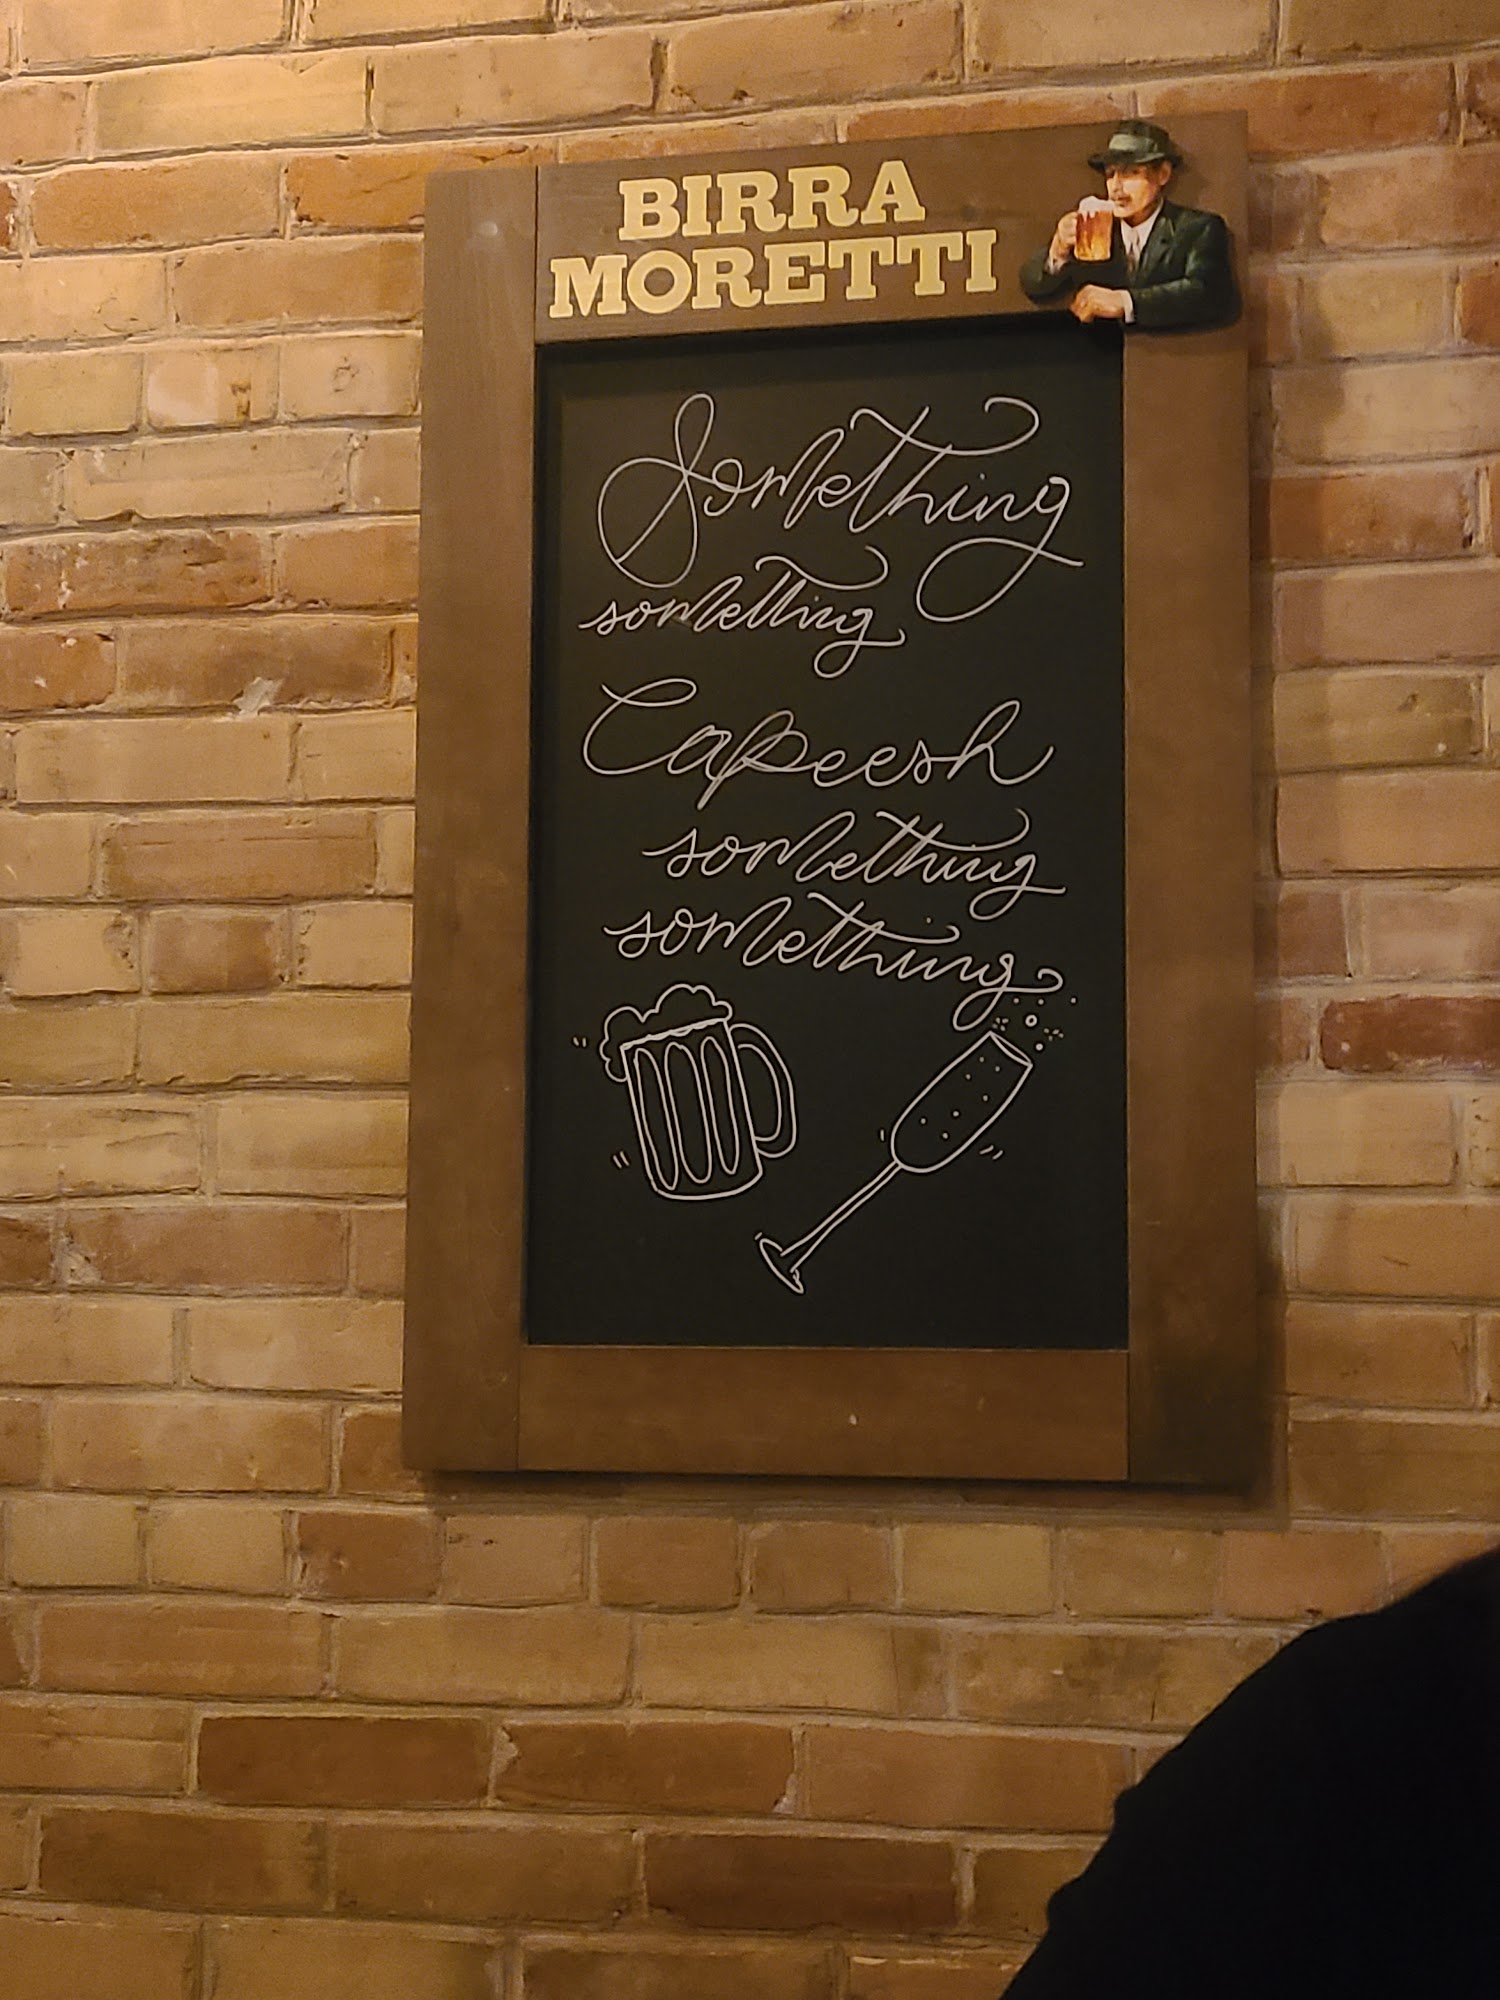 BIRRA
MORETTI
Something
something
Capeesh
something
something